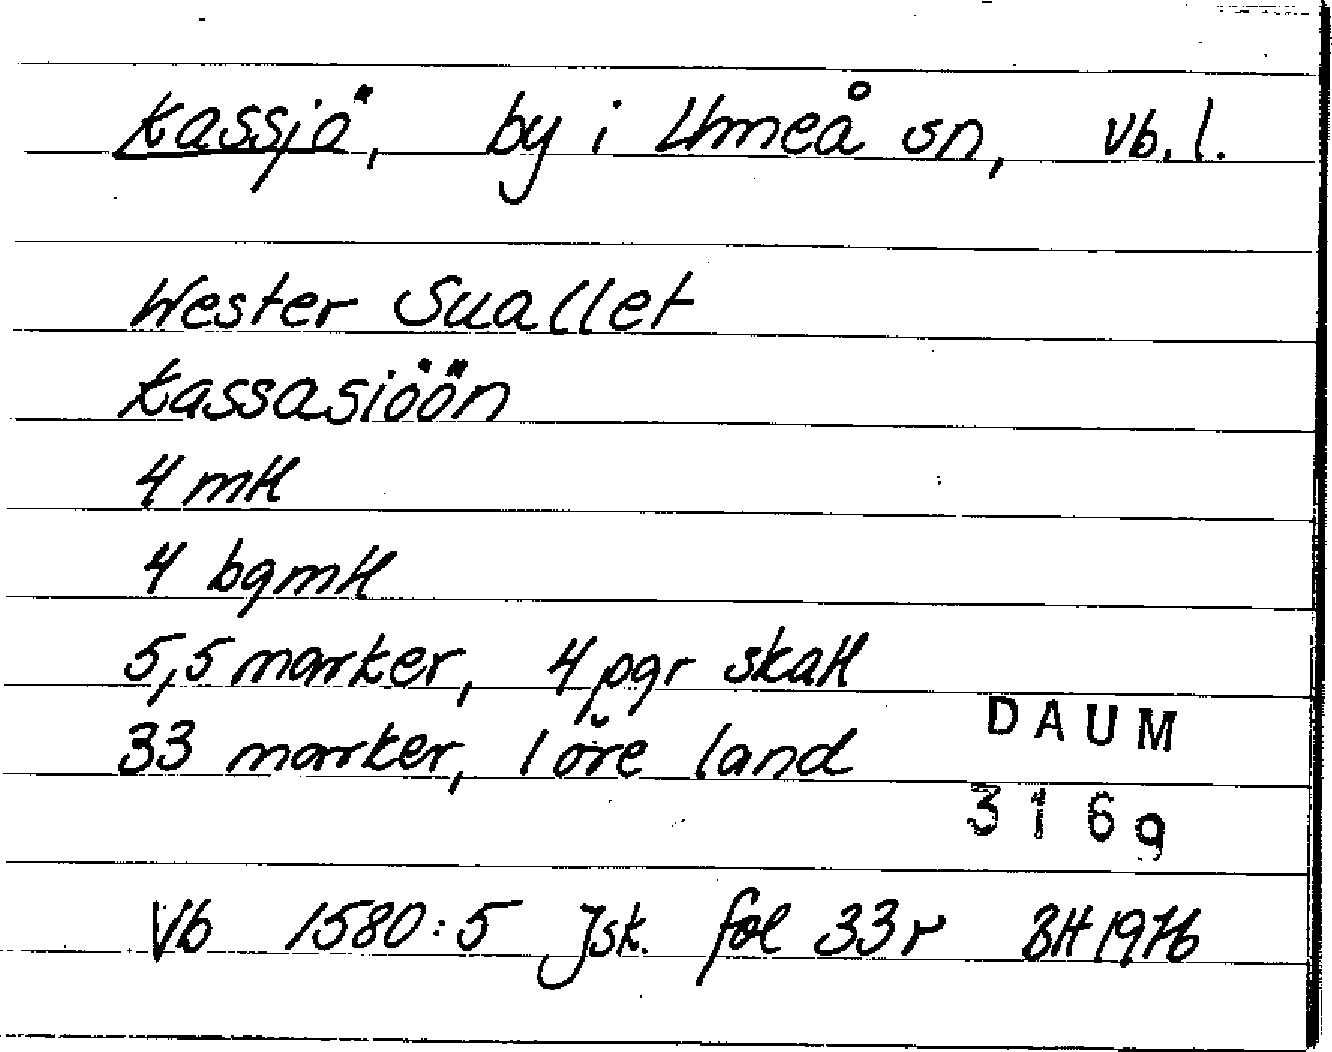 Kassjö, by i Umeå sn, Vb. l.
Wester Suallet
Kassasiöön
4 mtl
4 bgmtl
5,5 marker, 4 pgr skatt
33 marker, 1 öre land
DAUM
3169
Vb 1580:5 Jsk. fol 33r BH 1976